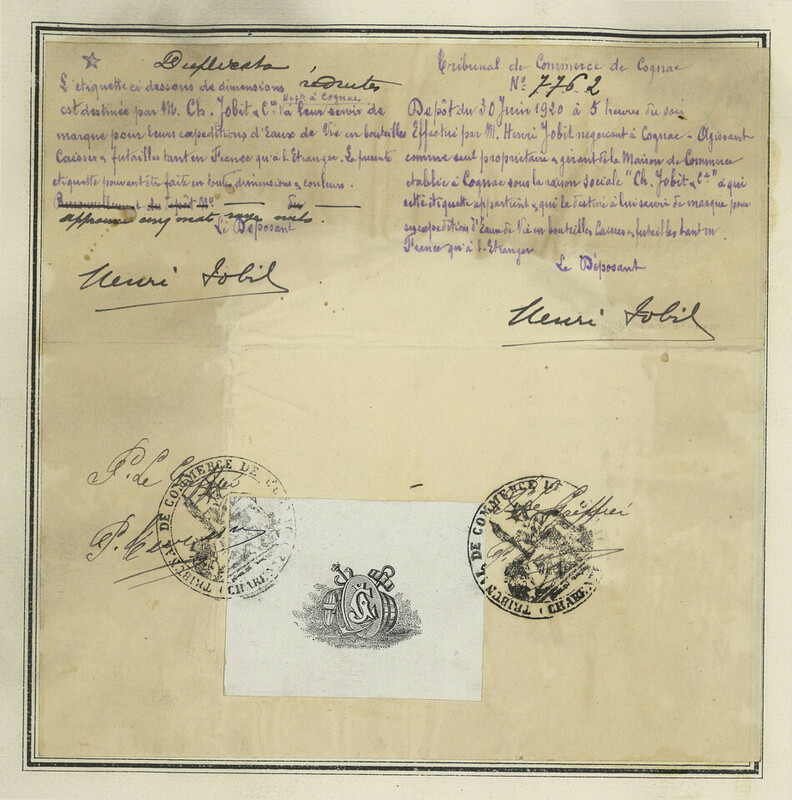 Duplicata
L'etiquette ci dessous de dimensions réduites
est destinée par M. Ch. Jobit & Cie Negt à Cognac à leur servir de
marque pour leurs expeditions d'Eaux de Vie en bouteilles
Caisses & futailles tant en France qu'à l'Etranger. La presente
etiquette pouvant être faite en toutes dimensions & couleurs.
Renouvellement du dépôt No du
approuvé cinq mots rayés nuls.
Le Déposant
Henri Jobit
Tribunal de Commerce de Cognac
No 7762
Depôt du 30 Juin 1920 à 5 heures du soir
Effectué par M. Henri Jobit negociant à Cognac - Agissant
comme seul propriétaire & gérant de la Maison de Commerce
etablie à Cognac sous la raison sociale "Ch. Jobit & Cie" à qui
cette etiquette appartient & qui la destine à lui servir de marque pour
ses expeditions d'Eaux de Vie en bouteilles Caisses & futailles tant en
France qu'à l'Etranger
Le Déposant
Henri Jobit
P. Le Greffier
TRIBUNAL DE COMMERCE DE
(CHARENTE)
Le Greffier
TRIBUNAL DE COMMERCE DE
(CHARENTE)